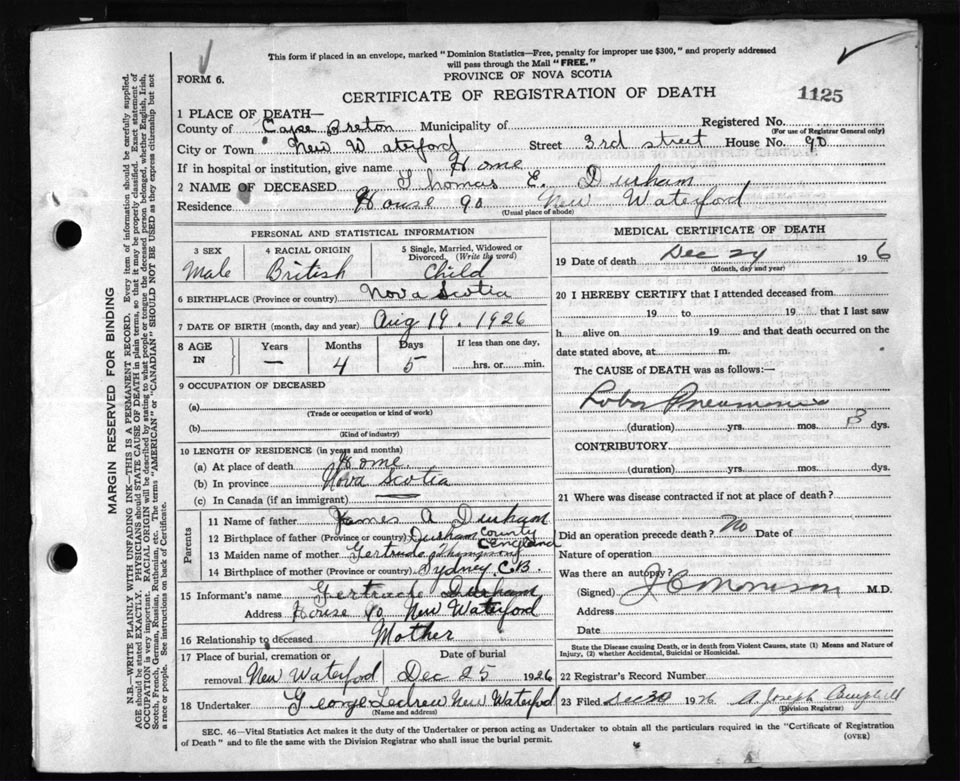 This form if placed in an envelope, marked "Dominion Statistics—Free, penalty for improper use $300," and properly addressed
will pass through the Mail "FREE."
FORM 6.
PROVINCE OF NOVA SCOTIA
CERTIFICATE OF REGISTRATION OF DEATH
1125
1 PLACE OF DEATH—
County of Cape Breton Municipality of Registered No.
(For use of Registrar General only)
City or Town New Waterford Street 3rd street House No. 90
If in hospital or institution, give name Home
2 NAME OF DECEASED Thomas E. Durham
Residence House 90 New Waterford
(Usual place of abode)
PERSONAL AND STATISTICAL INFORMATION
3 SEX Male
4 RACIAL ORIGIN British
5 Single, Married, Widowed or Divorced. (Write the word) Child
6 BIRTHPLACE (Province or country) Nova Scotia
7 DATE OF BIRTH (month, day and year) Aug 19. 1926
8 AGE IN Years — Months 4 Days 5 If less than one day, hrs. or min.
9 OCCUPATION OF DECEASED
(a)
(Trade or occupation or kind of work)
(b)
(Kind of industry)
10 LENGTH OF RESIDENCE (in years and months)
(a) At place of death Home
(b) In province Nova Scotia
(c) In Canada (if an immigrant)
Parents
11 Name of father James A Durham
12 Birthplace of father (Province or country) Durham County England
13 Maiden name of mother Gertrude
14 Birthplace of mother (Province or country) Sydney C.B.
15 Informant's name Gertrude Durham
Address House 90 New Waterford
16 Relationship to deceased Mother
17 Place of burial, cremation or removal New Waterford
Date of burial Dec 25 1926
18 Undertaker George Ledrew New Waterford
(Name and address)
MEDICAL CERTIFICATE OF DEATH
19 Date of death Dec 24 19 6
(Month, day and year)
20 I HEREBY CERTIFY that I attended deceased from
19 to 19 that I last saw
h alive on 19 and that death occurred on
date stated above, at m.
The CAUSE of DEATH was as follows:—
Lobar Pneumonia
(duration) yrs. mos. 8 dys.
CONTRIBUTORY.
(duration) yrs. mos. dys.
21 Where was disease contracted if not at place of death?
Did an operation precede death? No Date of
Nature of operation
Was there an autopsy?
(Signed) J C Morrison M.D.
Address
Date
State the Disease causing Death, or in death from Violent Causes, state (1) Means and Nature of
Injury, (2) whether Accidental, Suicidal or Homicidal.
22 Registrar's Record Number
23 Filed Dec 30 1926 A. Joseph Campbell
(Division Registrar)
SEC. 46—Vital Statistics Act makes it the duty of the Undertaker or person acting as Undertaker to obtain all the particulars required in the "Certificate of Registration
of Death" and to file the same with the Division Registrar who shall issue the burial permit.
(OVER)
MARGIN RESERVED FOR BINDING
N.B.—WRITE PLAINLY WITH UNFADING INK—THIS IS A PERMANENT RECORD. Every item of information should be carefully supplied.
AGE should be stated EXACTLY. PHYSICIANS should STATE CAUSE OF DEATH in plain terms, so that it may be properly classified. Exact statement of
OCCUPATION is very important. RACIAL ORIGIN will be described by stating to what people or tongue the deceased person belonged, whether English, Irish,
Scotch, French, German, Russian, Ruthenian, etc. The terms "AMERICAN" or "CANADIAN" SHOULD NOT BE USED as they express citizenship but not
a race or people. See instructions on back of Certificate.